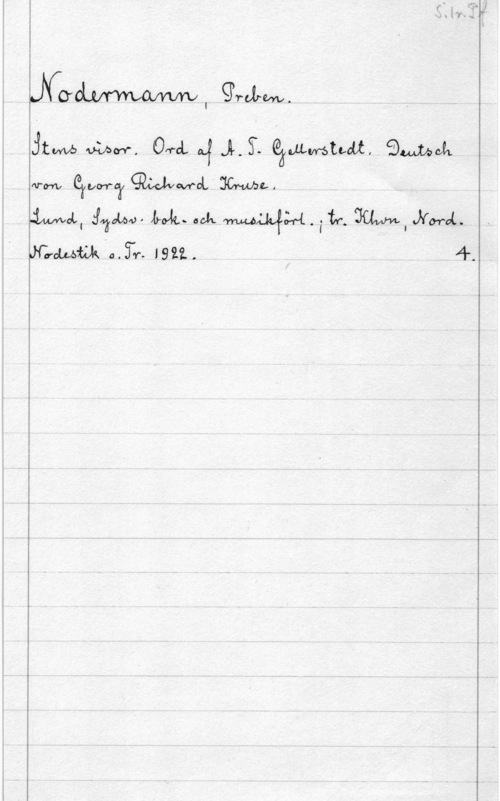 S.Ir.Pf
Nodermann, Preben.
Itens visor. Ord af A. T. Gellerstedt. Deutsch
von Georg Richard Kruse.
Lund, Sydsv. bok- och musikförl.; tr. Khvn, Nord.
Nodestik o. Tr. 1922. 4.